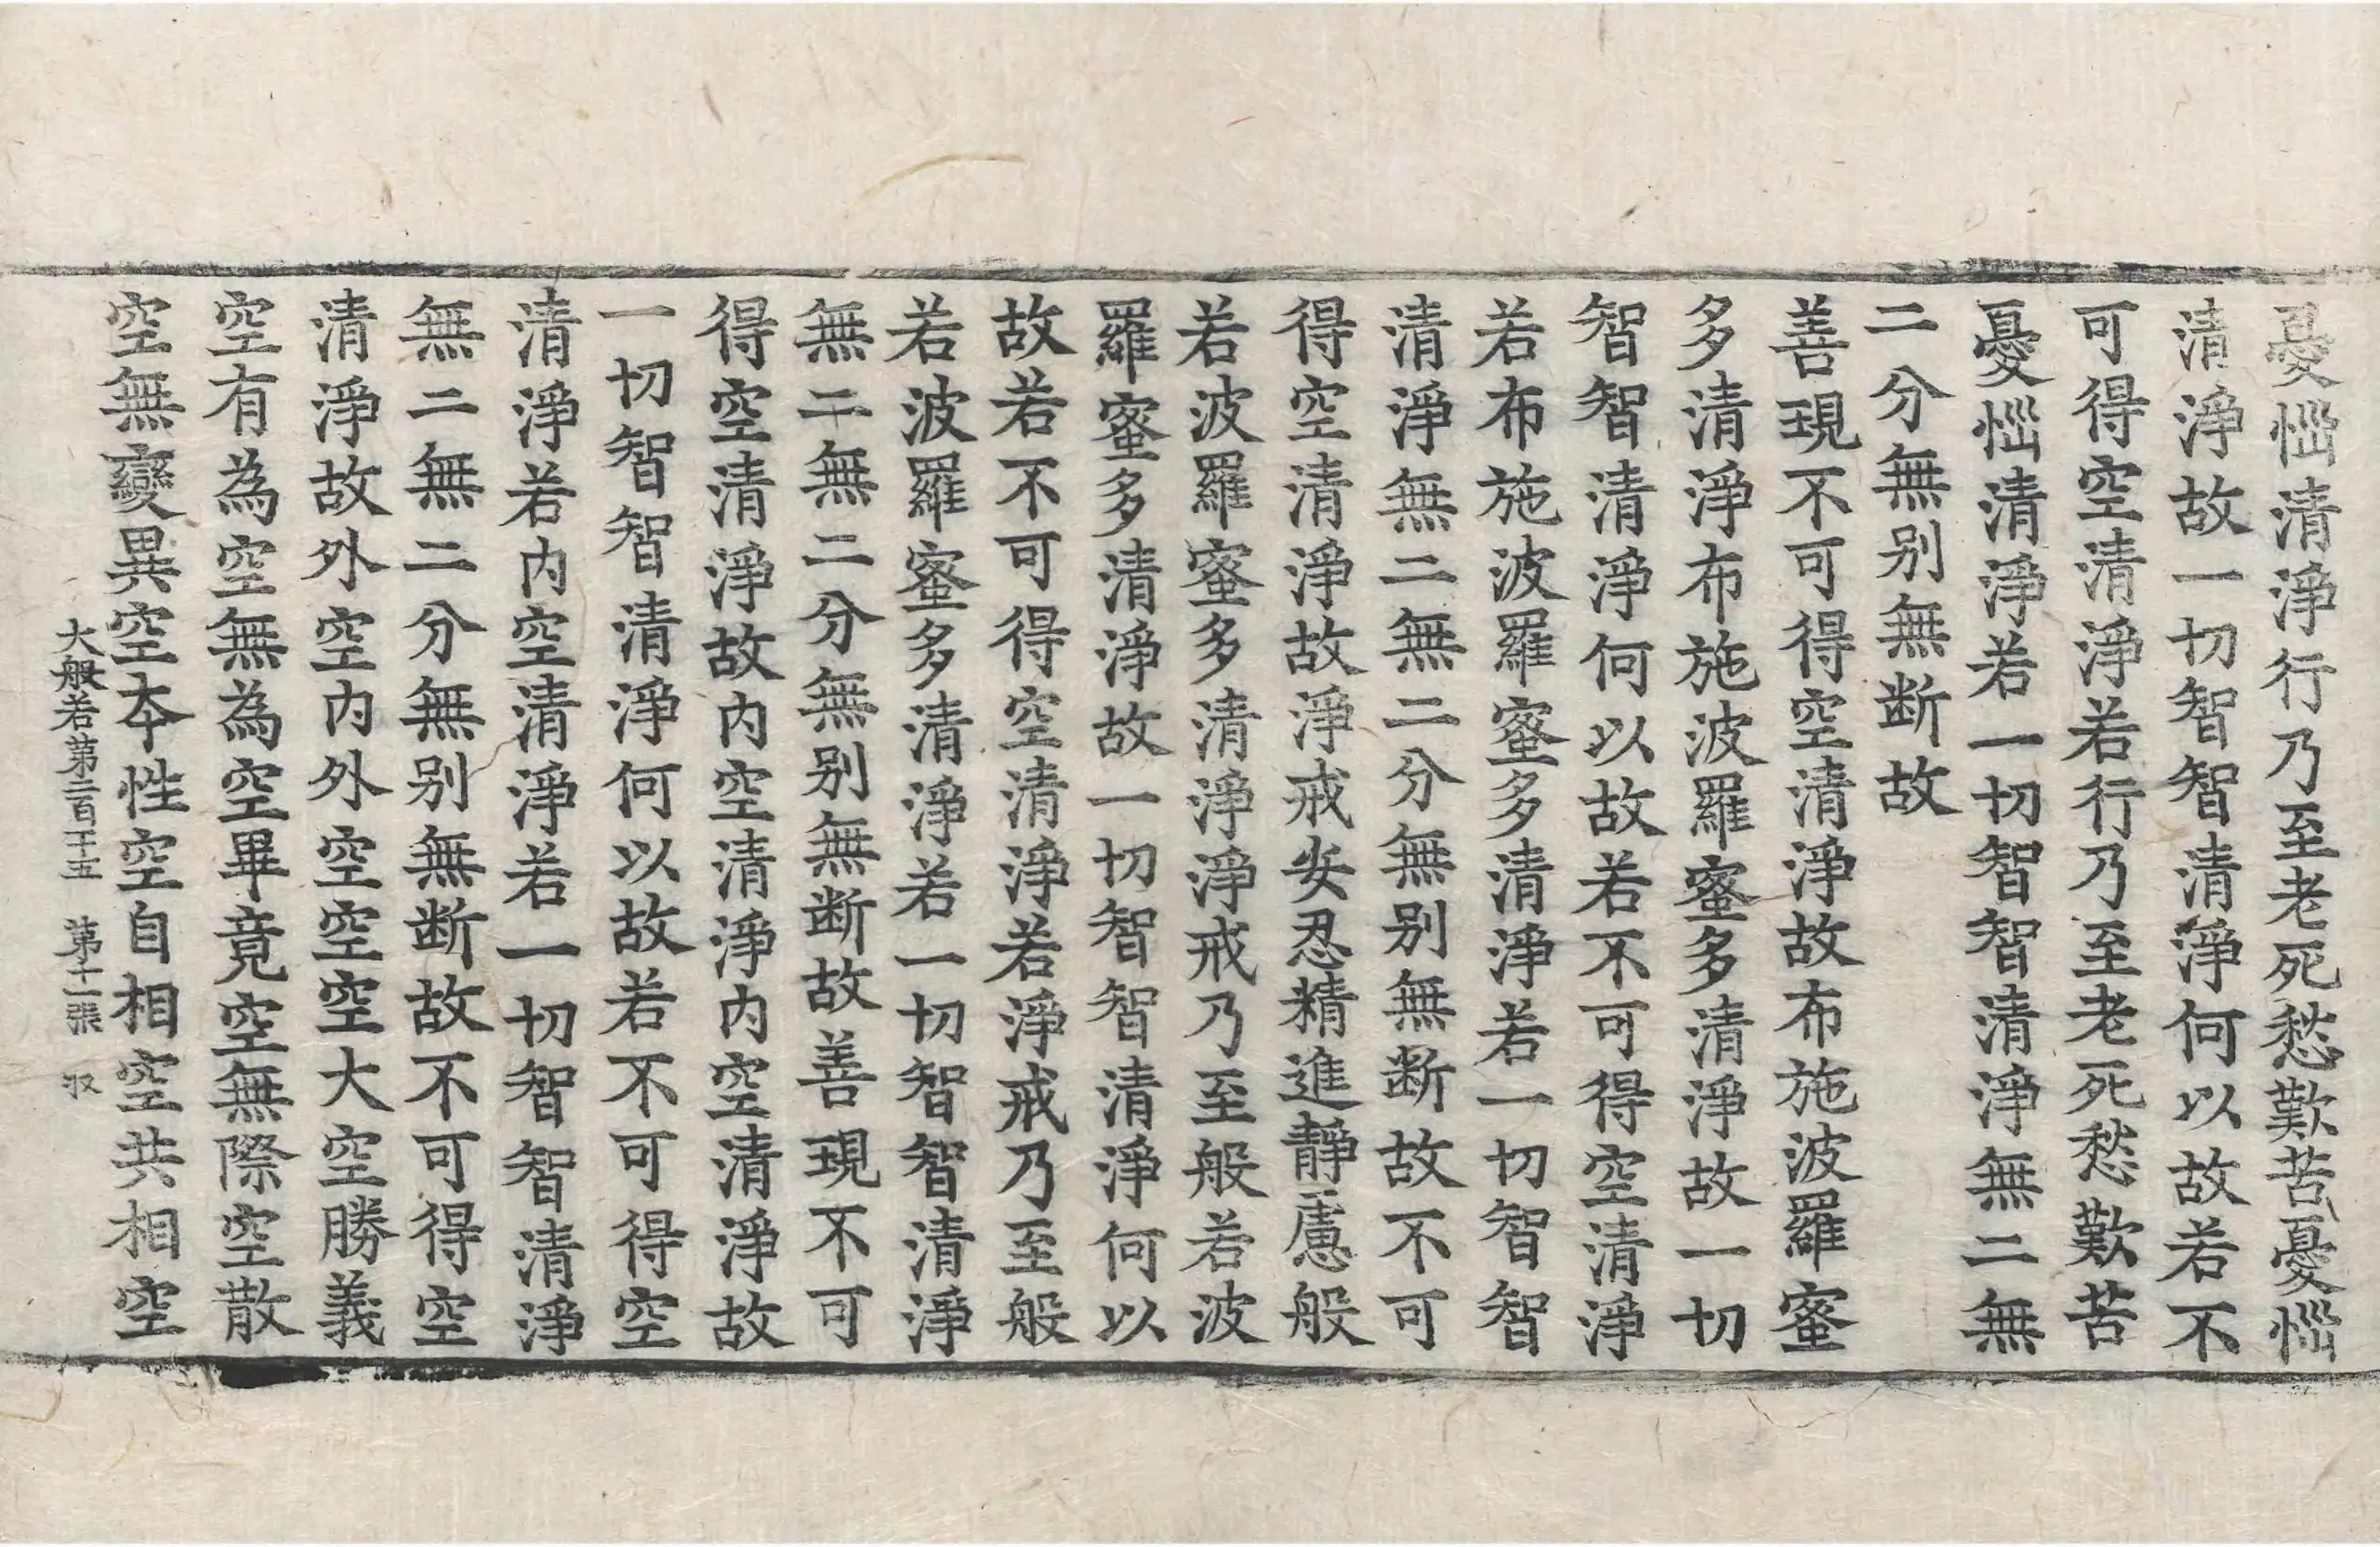 憂惱清淨行乃至老死愁歎苦憂惱
清淨故一切智智清淨何以故若不
可得空清淨若行乃至老死愁歎苦
憂惱清淨若一切智智清淨無二無
二分無別無斷故
善現不可得空清淨故布施波羅蜜
多清淨布施波羅蜜多清淨故一切
智智清淨何以故若不可得空清淨
若布施波羅蜜多清淨若一切智智
清淨無二無二分無別無斷故不可
得空清淨故淨戒安忍精進靜慮般
若波羅蜜多清淨淨戒乃至般若波
羅蜜多清淨故一切智智清淨何以
故若不可得空清淨若淨戒乃至般
若波羅蜜多清淨若一切智智清淨
無二無二分無別無斷故善現不可
得空清淨故內空清淨內空清淨故
一切智智清淨何以故若不可得空
清淨若內空清淨若一切智智清淨
無二無二分無別無斷故不可得空
清淨故外空內外空空空大空勝義
空有為空無為空畢竟空無際空散
空無變異空本性空自相空共相空
大般若第二百二十五 第十一張